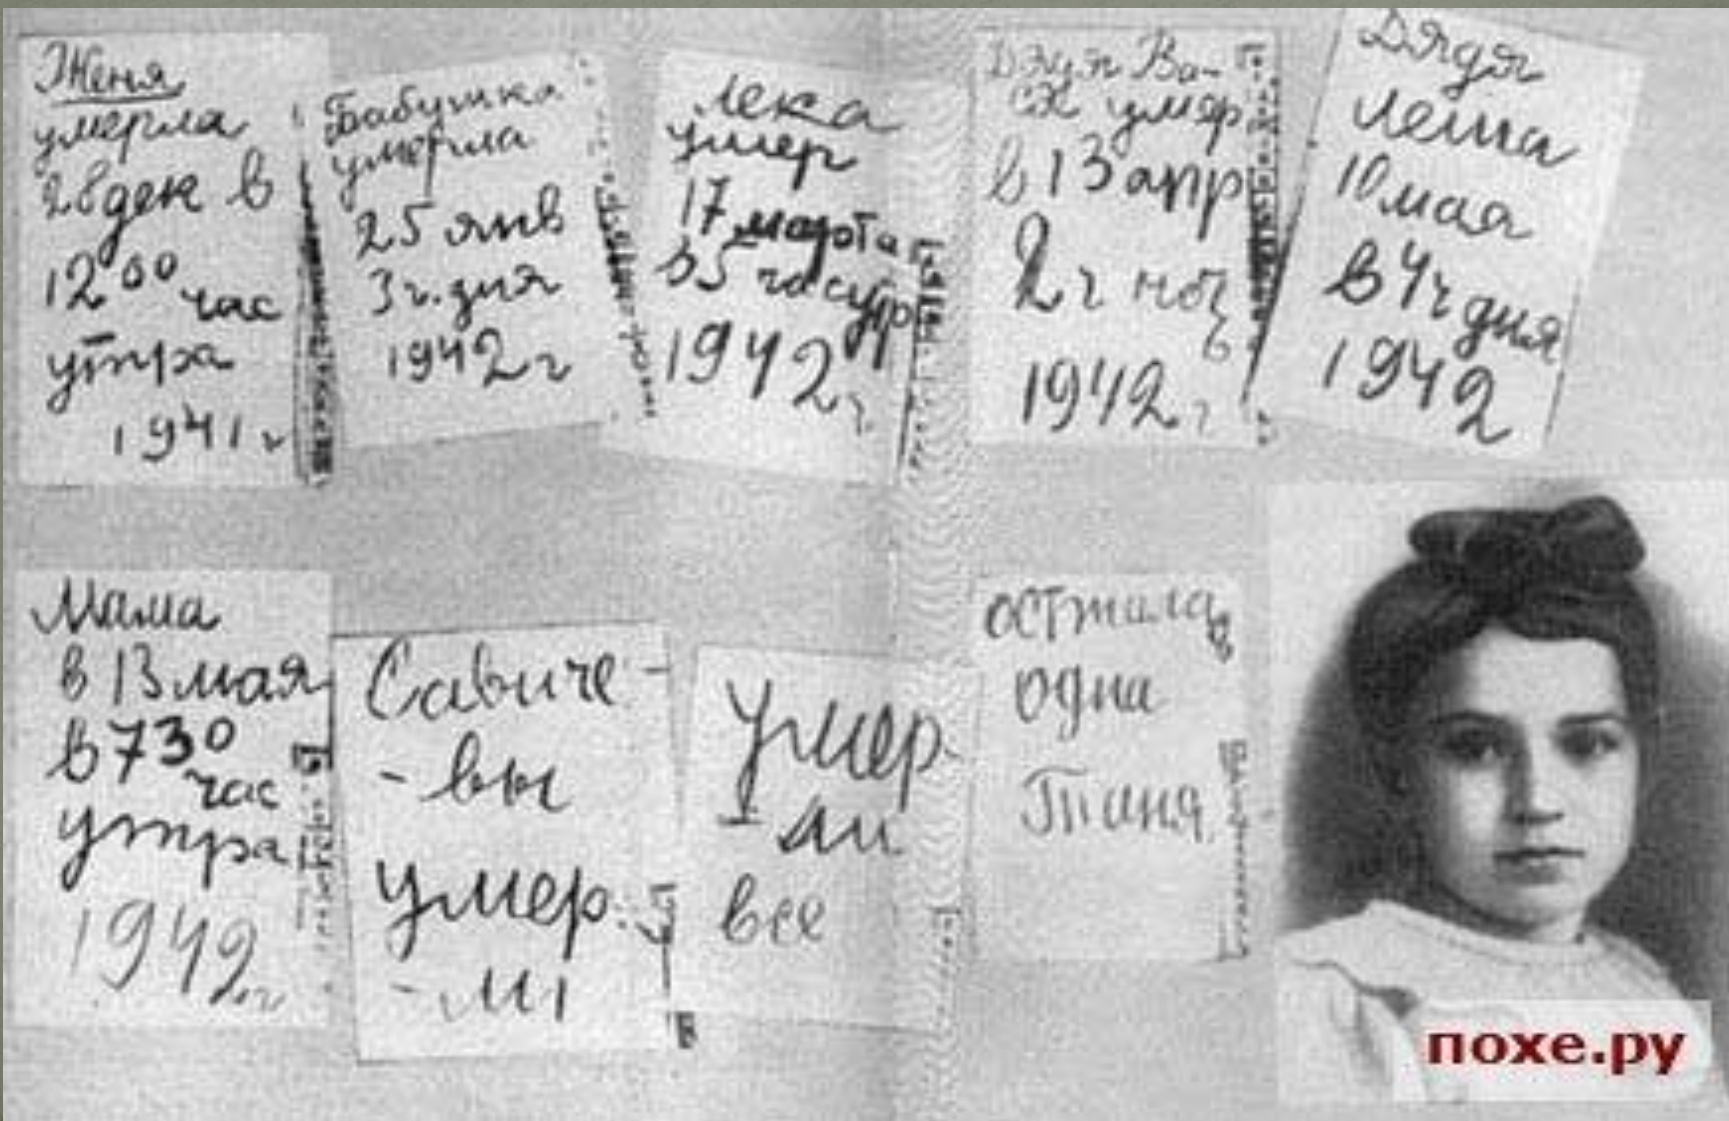 Женя
умерла
28 дек в
12 00 час
утра
1941 г
Бабушка
умерла
25 янв
3 ч. дня
1942 г
Лека
умер
17 марта
в 5 час утр
1942 г
Дядя Ва-
ся умер
в 13 апр
2 ч ноч
ь
1942 г
Дядя
Леша
10 мая
в 4 ч дня
1942
Мама
в 13 мая
в 7 30
час
утра
1942 г
Савиче-
-вы
умер
-ли
умер
-ли
все
осталась
одна
Таня
похе.ру